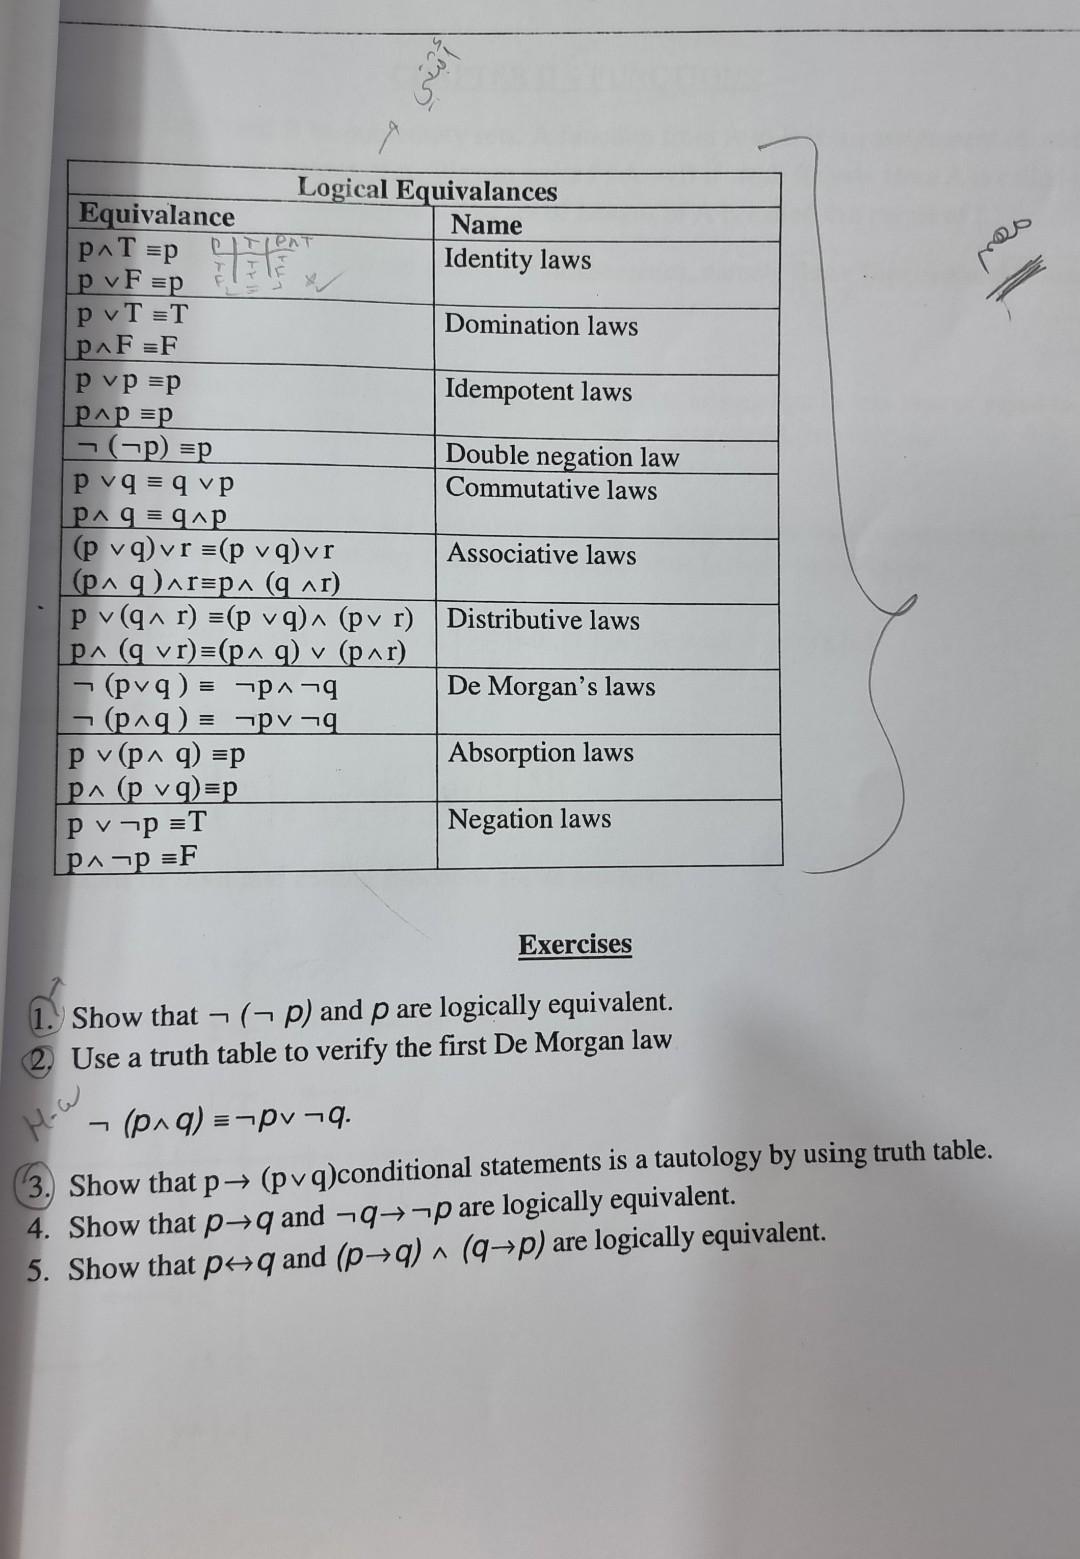 أثبتي
مهم
Logical Equivalances
Equivalance Name
p∧T ≡p Identity laws
p T p∧T
p ∨F ≡p
p ∨T ≡T Domination laws
p∧F ≡F
p ∨p ≡p Idempotent laws
p∧p ≡p
¬ (¬p) ≡p Double negation law
p ∨q ≡ q ∨p Commutative laws
p∧ q ≡ q∧p
(p ∨q)∨r ≡(p ∨q)∨r Associative laws
(p∧ q )∧r≡p∧ (q ∧r)
p ∨(q∧ r) ≡(p ∨q)∧ (p∨ r) Distributive laws
p∧ (q ∨r)≡(p∧ q) ∨ (p∧r)
¬ (p∨q ) ≡ ¬p∧¬q De Morgan’s laws
¬ (p∧q ) ≡ ¬p∨¬q
p ∨(p∧ q) ≡p Absorption laws
p∧ (p ∨q)≡p
p ∨¬p ≡T Negation laws
p∧¬p ≡F
Exercises
1. Show that ¬ (¬ p) and p are logically equivalent.
2. Use a truth table to verify the first De Morgan law
H-W
¬ (p∧q) ≡¬p∨ ¬q.
3. Show that p→ (p∨q)conditional statements is a tautology by using truth table.
4. Show that p→q and ¬q→¬p are logically equivalent.
5. Show that p↔q and (p→q) ∧ (q→p) are logically equivalent.